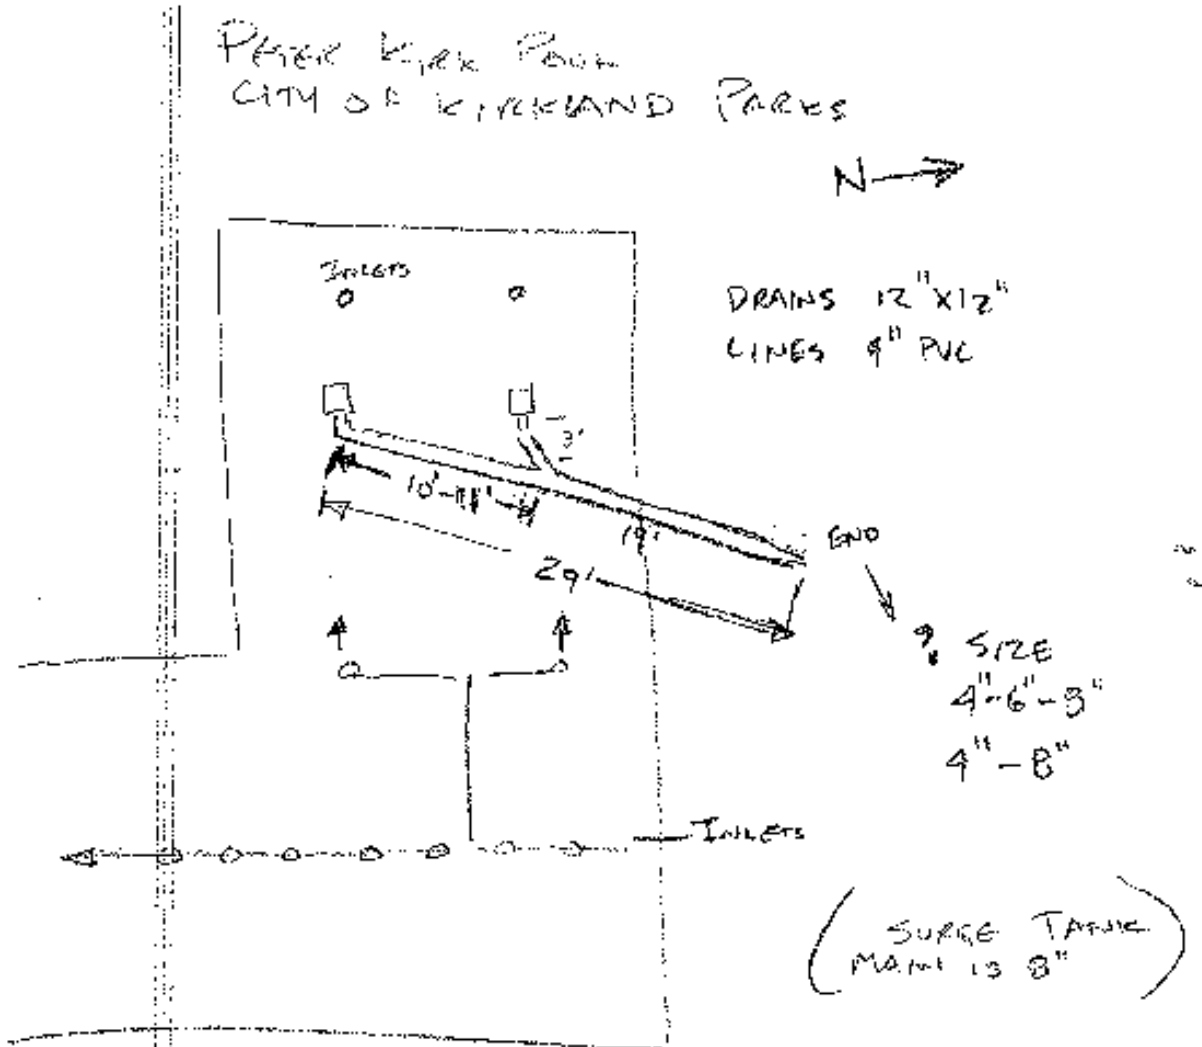 PETER KIRK POOL
CITY OF KIRKLAND PARKS
N
INLETS
DRAINS 12"X12"
LINES 9" PVC
3'
10'-11'
19'
29'
END
? SIZE
4"-6"-8"
4"-8"
INLETS
(SURGE TANK
MAIN IS 8")